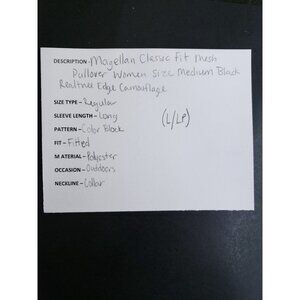 DESCRIPTION - Magellan Classic Fit Mesh
Pullover Women Size Medium Black
Realtree Edge Camouflage
SIZE TYPE - Regular
SLEEVE LENGTH - Long
(L/LP)
PATTERN - Color Block
FIT - Fitted
M ATERIAL - Polyester
OCCASION - Outdoors
NECKLINE - Collar